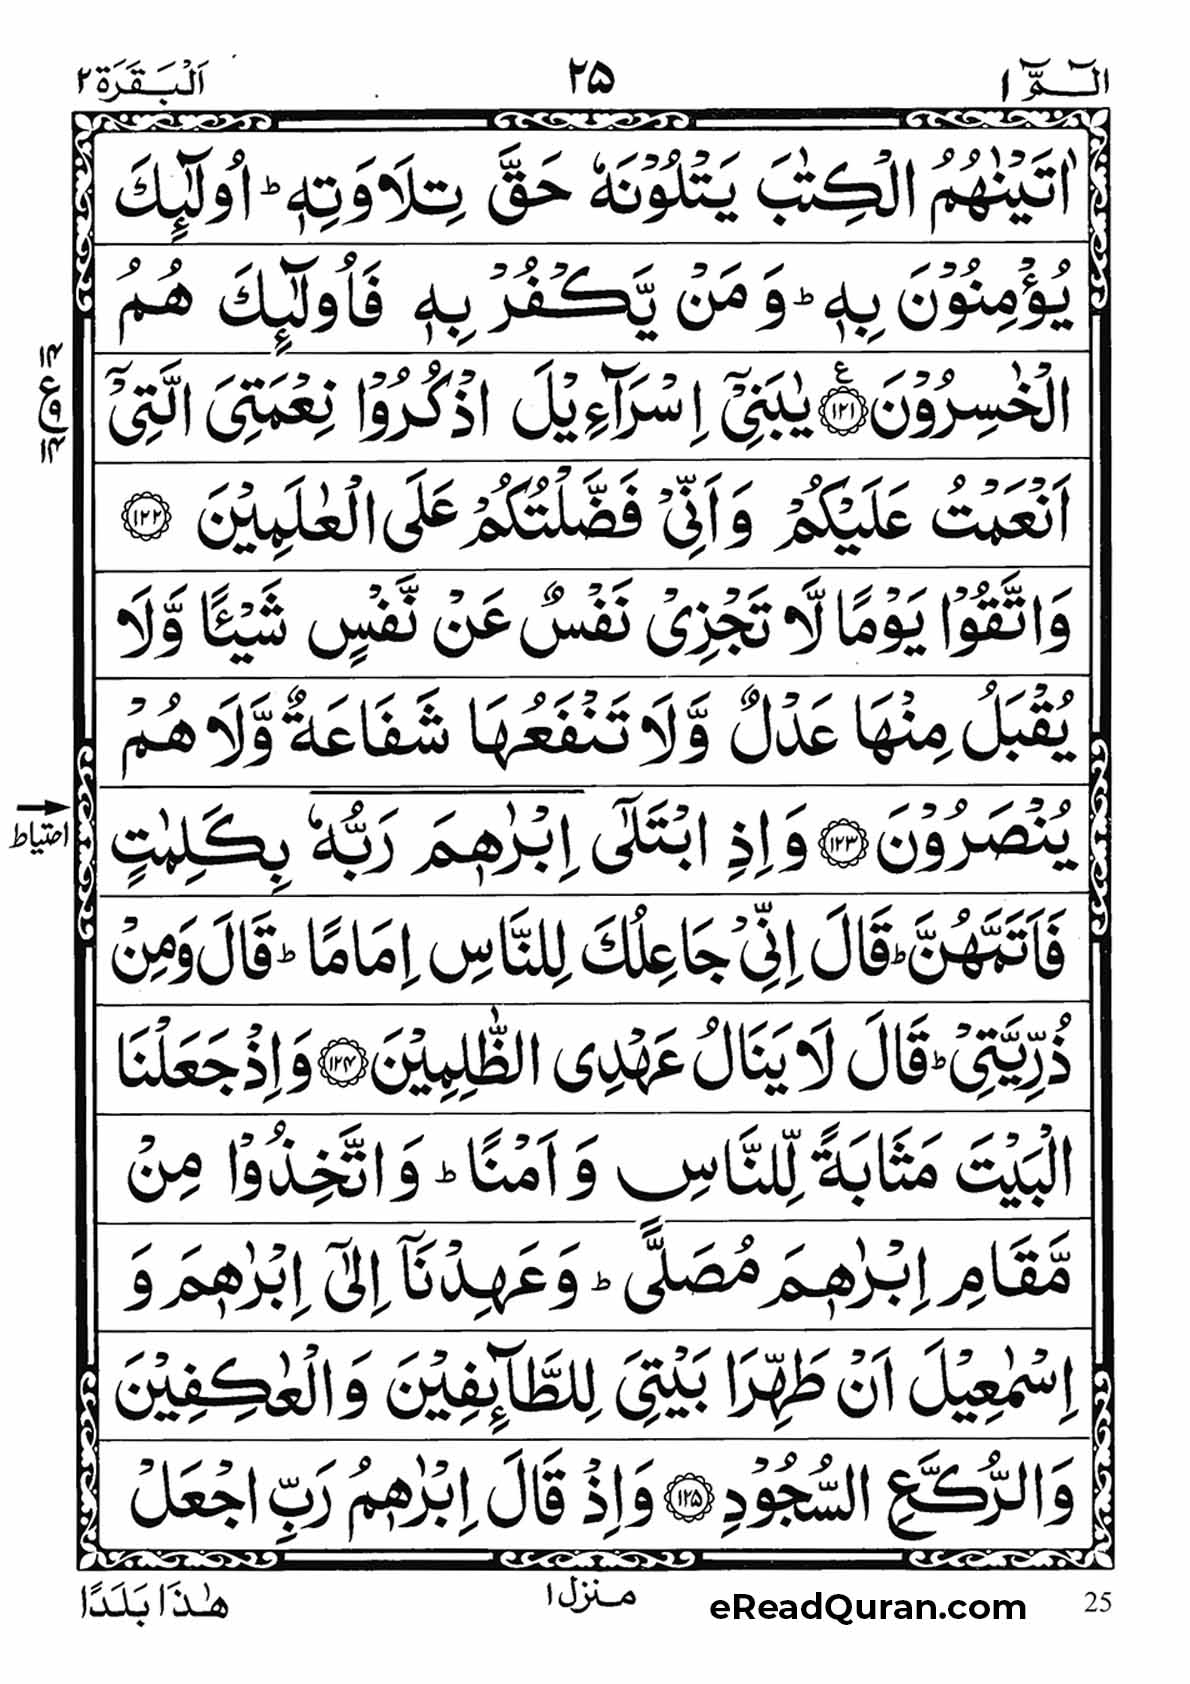 الٓمّٓ ١ ٢٥ اَلْبَقَرَة ٢
اٰتَيْنٰهُمُ الْكِتٰبَ يَتْلُوْنَهٗ حَقَّ تِلَاوَتِهٖ ؕ اُولٰٓئِكَ
يُؤْمِنُوْنَ بِهٖ ؕ وَ مَنْ يَّكْفُرْ بِهٖ فَاُولٰٓئِكَ هُمُ
الْخٰسِرُوْنَ ﴿۱۲۱﴾ يٰبَنِىْٓ اِسْرَآءِيْلَ اذْكُرُوْا نِعْمَتِىَ الَّتِىْٓ
ع ١٤ ٩ ١٤
اَنْعَمْتُ عَلَيْكُمْ وَ اَنِّىْ فَضَّلْتُكُمْ عَلَى الْعٰلَمِيْنَ ﴿۱۲۲﴾
وَ اتَّقُوْا يَوْمًا لَّا تَجْزِىْ نَفْسٌ عَنْ نَّفْسٍ شَيْـًٔا وَّلَا
يُقْبَلُ مِنْهَا عَدْلٌ وَّلَا تَنْفَعُهَا شَفَاعَةٌ وَّلَا هُمْ
يُنْصَرُوْنَ ﴿۱۲۳﴾ وَ اِذِ ابْتَلٰٓى اِبْرٰهٖمَ رَبُّهٗ بِكَلِمٰتٍ
احتیاط
فَاَتَمَّهُنَّ ؕ قَالَ اِنِّىْ جَاعِلُكَ لِلنَّاسِ اِمَامًا ؕ قَالَ وَمِنْ
ذُرِّيَّتِىْ ؕ قَالَ لَا يَنَالُ عَهْدِى الظّٰلِمِيْنَ ﴿۱۲۴﴾ وَ اِذْ جَعَلْنَا
الْبَيْتَ مَثَابَةً لِّلنَّاسِ وَ اَمْنًا ؕ وَ اتَّخِذُوْا مِنْ
مَّقَامِ اِبْرٰهٖمَ مُصَلًّى ؕ وَ عَهِدْنَآ اِلٰٓى اِبْرٰهٖمَ وَ
اِسْمٰعِيْلَ اَنْ طَهِّرَا بَيْتِىَ لِلطَّآئِفِيْنَ وَ الْعٰكِفِيْنَ
وَ الرُّكَّعِ السُّجُوْدِ ﴿۱۲۵﴾ وَ اِذْ قَالَ اِبْرٰهٖمُ رَبِّ اجْعَلْ
هٰذَا بَلَدًا منزل ١ eReadQuran.com 25